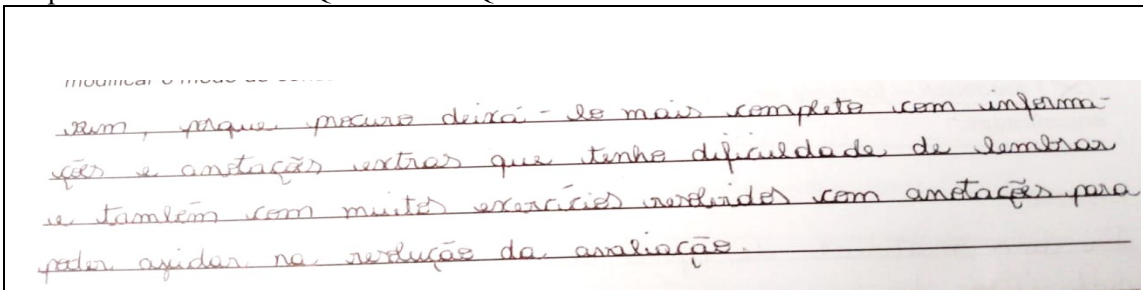 sim, porque procuro deixá-lo mais completo com informa-
ções e anotações extras que tenho dificuldade de lembrar
e também com muitos exercícios resolvidos com anotações para
poder ajudar na resolução da avaliação.